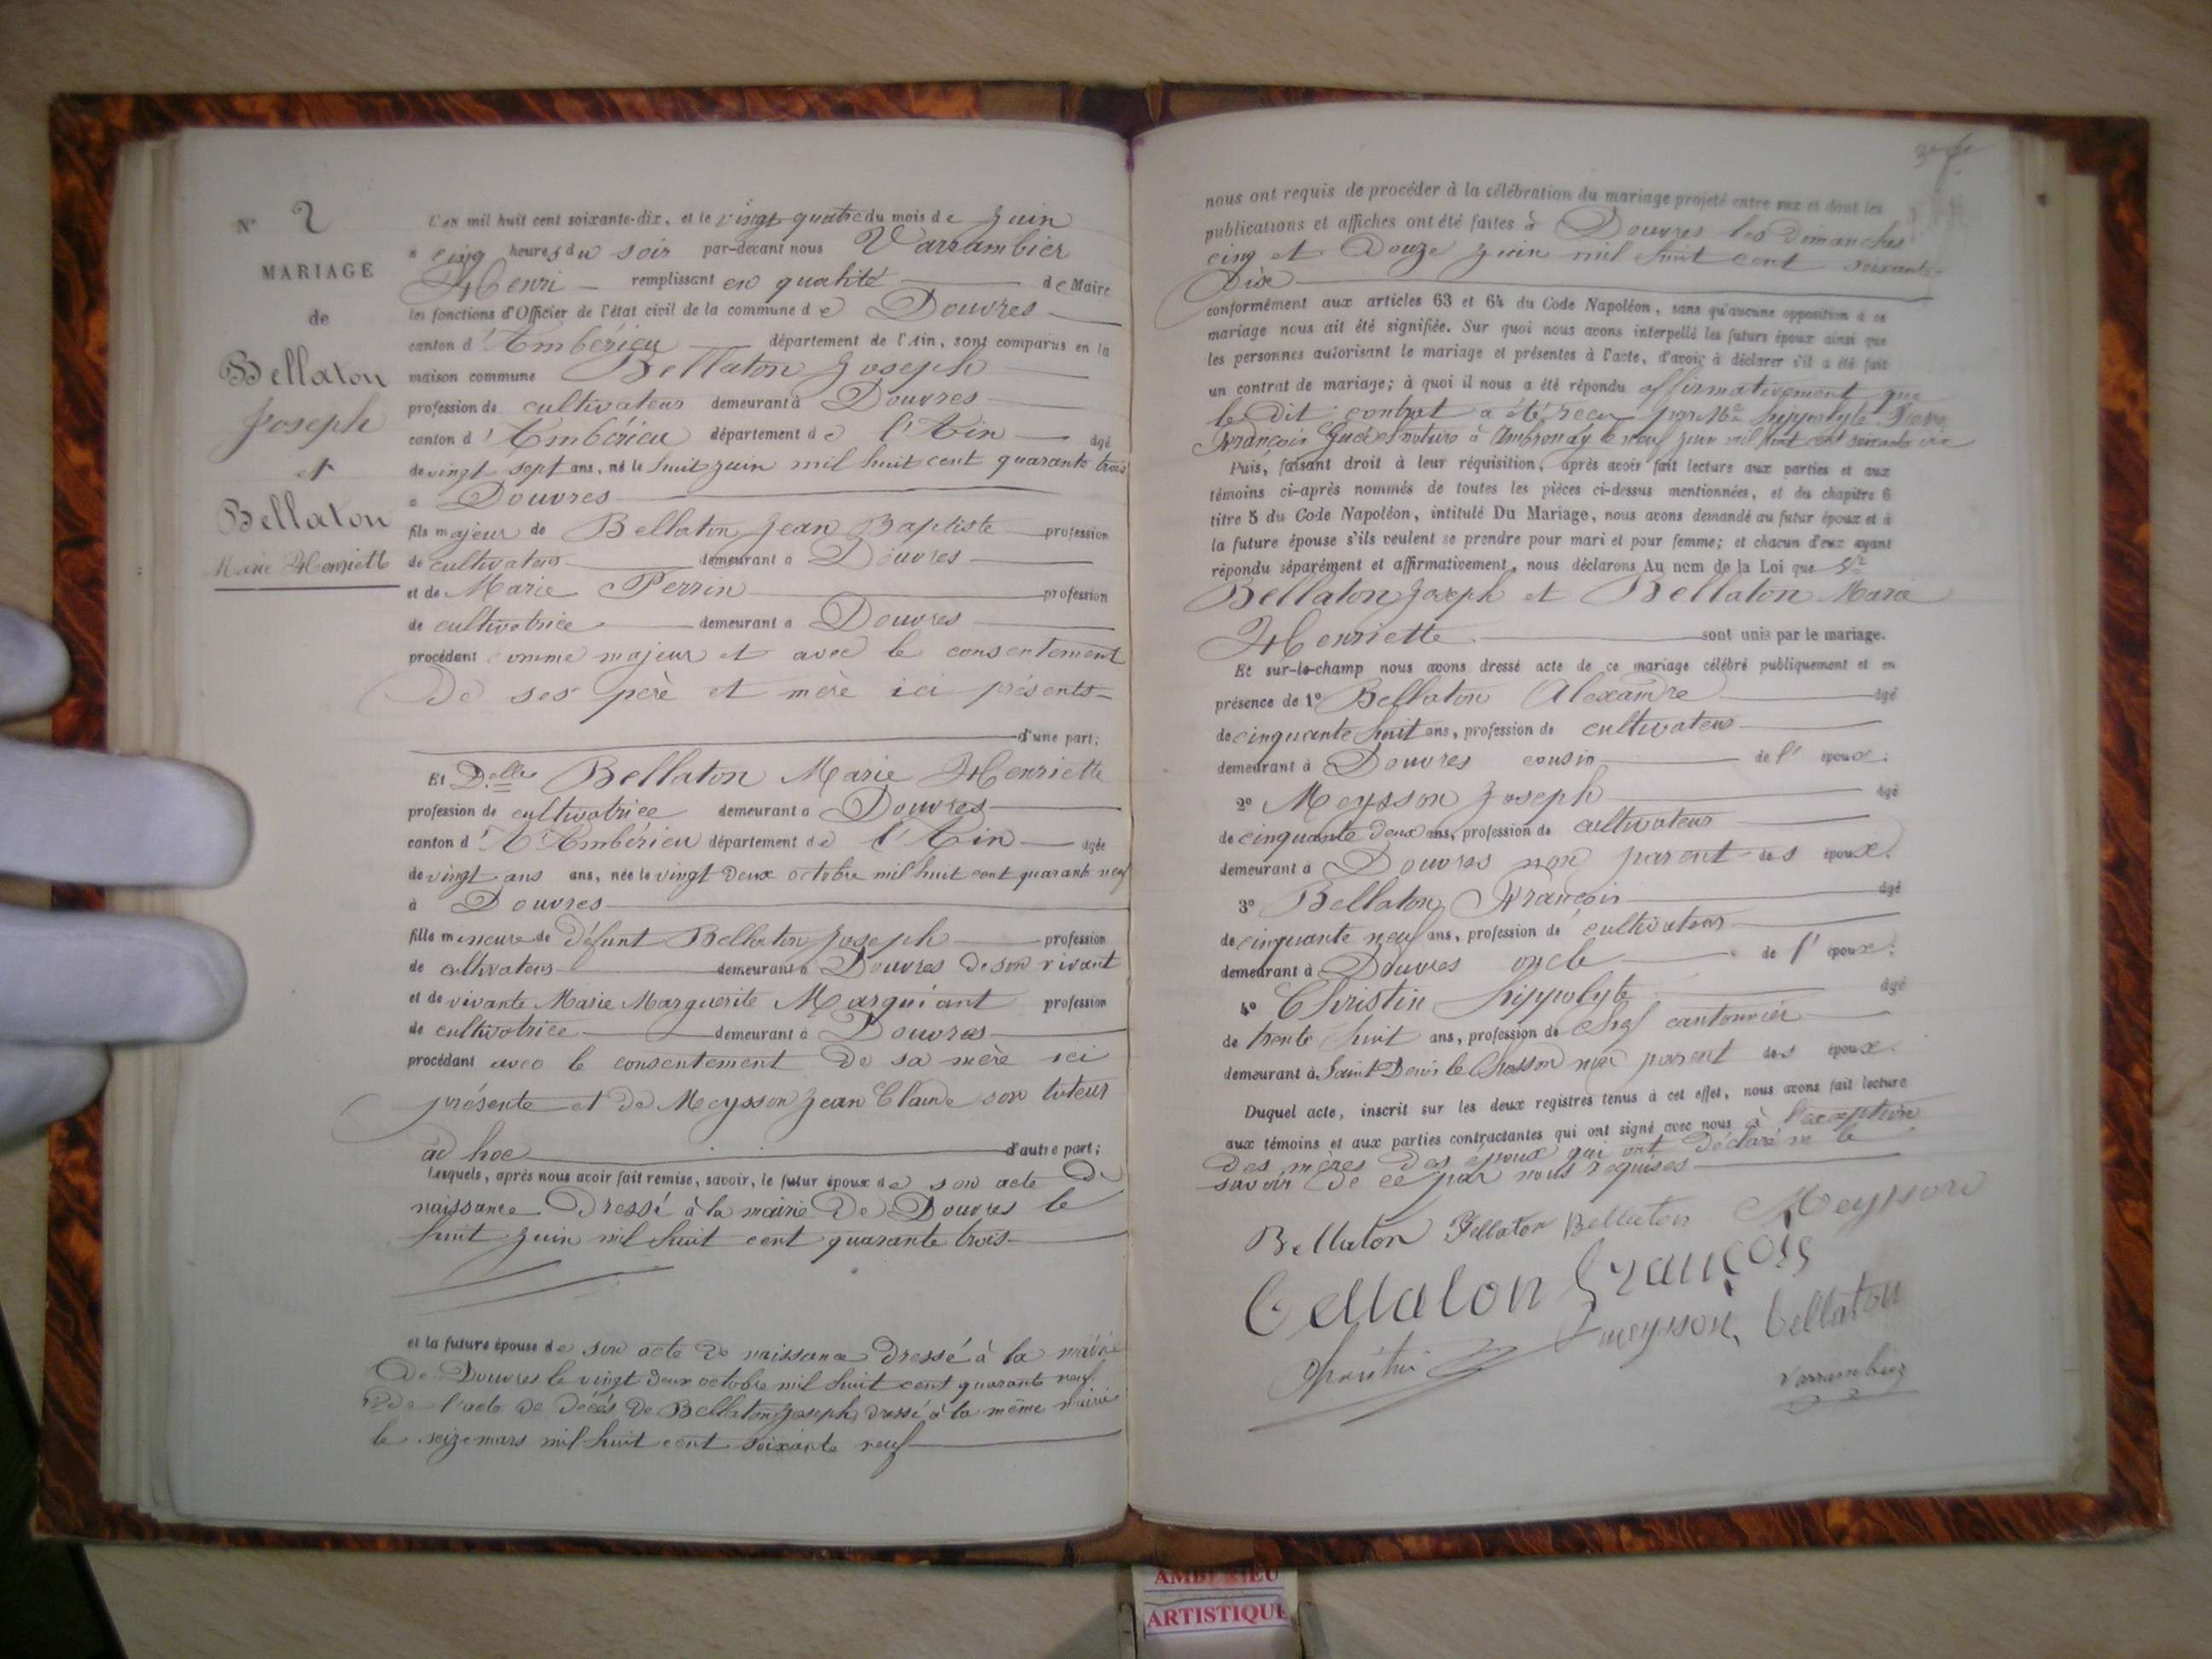 N° 2
MARIAGE
de
Bellaton
Joseph
et
Bellaton
Marie Henriette
L'an mil huit cent soixante-dix, et le vingt quatre du mois de Juin
a cinq heures du soir par-devant nous Varrambier
Henri remplissant en qualité de Maire
les fonctions d'Officier de l'état civil de la commune de Douvres
canton d'Ambérieu département de l'Ain, sont comparus en la
maison commune Bellaton Joseph
profession de cultivateur demeurant à Douvres
canton d'Ambérieu département de l'Ain âgé
de vingt sept ans, né le huit juin mil huit cent quarante trois
a Douvres
fils majeur de Bellaton Jean Baptiste profession
de cultivateur demeurant a Douvres
et de Marie Perrin profession
de cultivatrice demeurant a Douvres
procédant comme majeur et avec le consentement
de ses père et mère ici présents
d'une part;
Et Delle Bellaton Marie Henriette
profession de cultivatrice demeurant a Douvres
canton d'Ambérieu département de l'Ain âgée
de vingt ans ans, née le vingt deux octobre mil huit cent quarante neuf
à Douvres
fille mineure de défunt Bellaton Joseph profession
de cultivateur demeurant a Douvres de son vivant
et de vivante Marie Marguerite Marguiant profession
de cultivatrice demeurant a Douvres
procédant avec le consentement de sa mère ici
présente et de Meysson Jean Claude son tuteur
ad hoc d'autre part;
Lesquels, après nous avoir fait remise, savoir, le futur époux de son acte de
naissance dressé à la mairie de Douvres le
huit juin mil huit cent quarante trois
et la future épouse de son acte de naissance dressé à la mairie
de Douvres le vingt deux octobre mil huit cent quarante neuf
2° de l'acte de décés de Bellaton Joseph dressé à la même mairie
le seize mars mil huit cent soixante neuf
nous ont requis de procéder à la célébration du mariage projeté entre eux et dont les
publications et affiches ont été faites à Douvres les dimanches
cinq et douze juin mil huit cent soixante
dix
conformément aux articles 63 et 64 du Code Napoléon, sans qu'aucune opposition à ce
mariage nous ait été signifiée. Sur quoi nous avons interpellé les futurs époux ainsi que
les personnes autorisant le mariage et présentes à l'acte, d'avoir à déclarer s'il a été fait
un contrat de mariage; à quoi il nous a été répondu affirmativement que
le dit contrat a été reçu par Me hyppolyte
François notaire à Ambronay le neuf juin mil huit cent soixante dix
Puis, faisant droit à leur réquisition, après avoir fait lecture aux parties et aux
témoins ci-après nommés de toutes les pièces ci-dessus mentionnées, et du chapitre 6
titre 5 du Code Napoléon, intitulé Du Mariage, nous avons demandé au futur époux et à
la future épouse s'ils veulent se prendre pour mari et pour femme; et chacun d'eux ayant
répondu séparément et affirmativement, nous déclarons Au nom de la Loi que
Bellaton Joseph et Bellaton Marie
Henriette sont unis par le mariage.
Et sur-le-champ nous avons dressé acte de ce mariage célébré publiquement et en
présence de 1° Bellaton Alexandre âgé
de cinquante huit ans, profession de cultivateur
demeurant à Douvres cousin de l'époux;
2° Meysson Joseph âgé
de cinquante deux ans, profession de cultivateur
demeurant à Douvres non parent des époux.
3° Bellaton François âgé
de cinquante neuf ans, profession de cultivateur
demeurant à Douvres oncle de l'époux;
4° Christin hippolyte âgé
de trente huit ans, profession de chef cantonnier
demeurant à Saint Denis le Chosson non parent des époux.
Duquel acte, inscrit sur les deux registres tenus à cet effet, nous avons fait lecture
aux témoins et aux parties contractantes qui ont signé avec nous à l'exception
des mères des époux qui ont déclaré ne le
savoir de ce par nous requises
Bellaton Bellaton Bellaton Meysson
bellaton françois
meysson bellaton
Varrambier
AMBERIEU
ARTISTIQUE